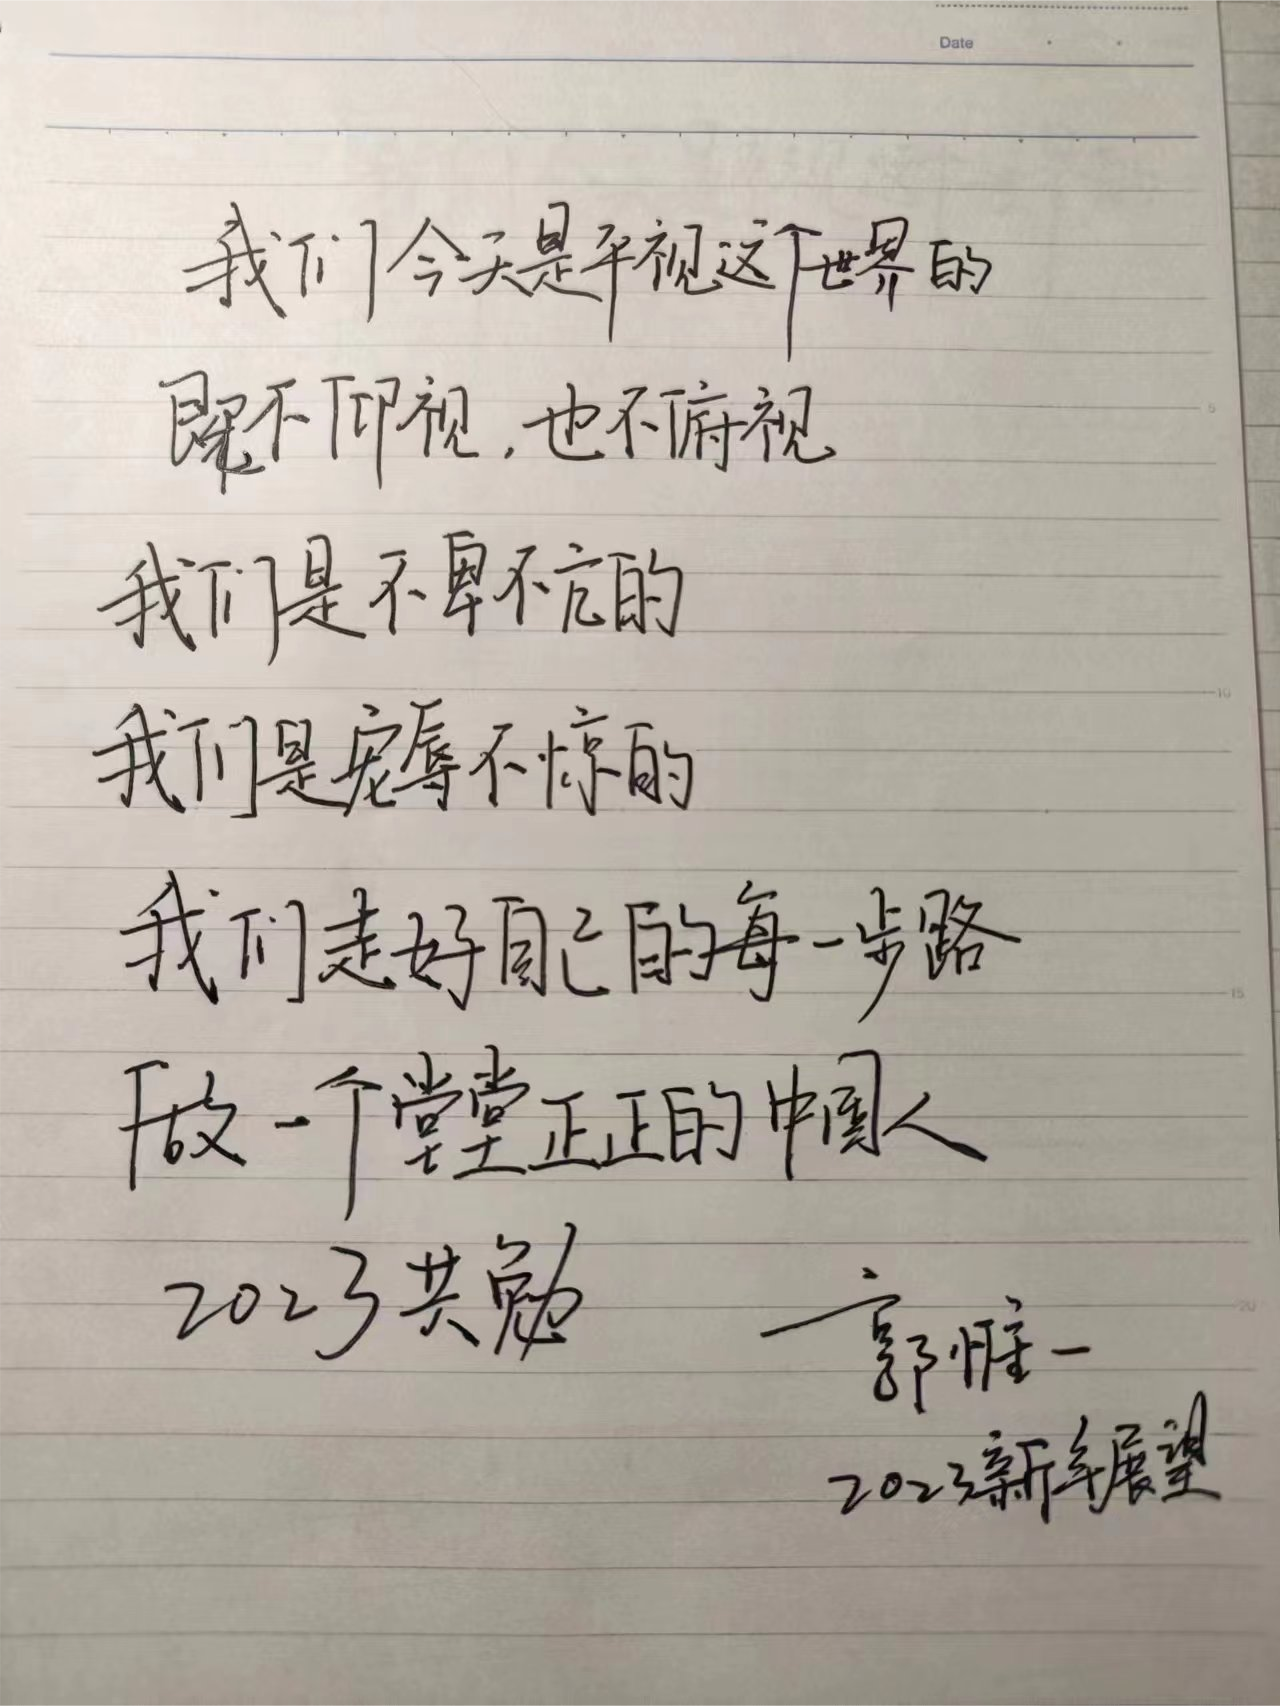 Date
我们今天是平视这个世界的
既不仰视,也不俯视
我们是不卑不亢的
我们是宠辱不惊的
我们走好自己的每一步路
做一个堂堂正正的中国人
2023共勉
郭惟一
2023新年展望
5
10
15
20